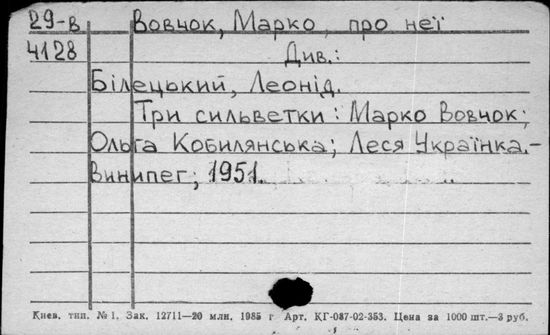 29-в Вовчок, Марко, про неї
4128 Див.:
Білецький, Леонід.
Три сильветки: Марко Вовчок;
Ольга Кобилянська; Леся Українка.-
Винипег; 1951.
Киев. тип. № 1. Зак. 12711—20 млн. 1985 г Арт. КГ-087-02-353. Цена за 1000 шт.—3 руб.